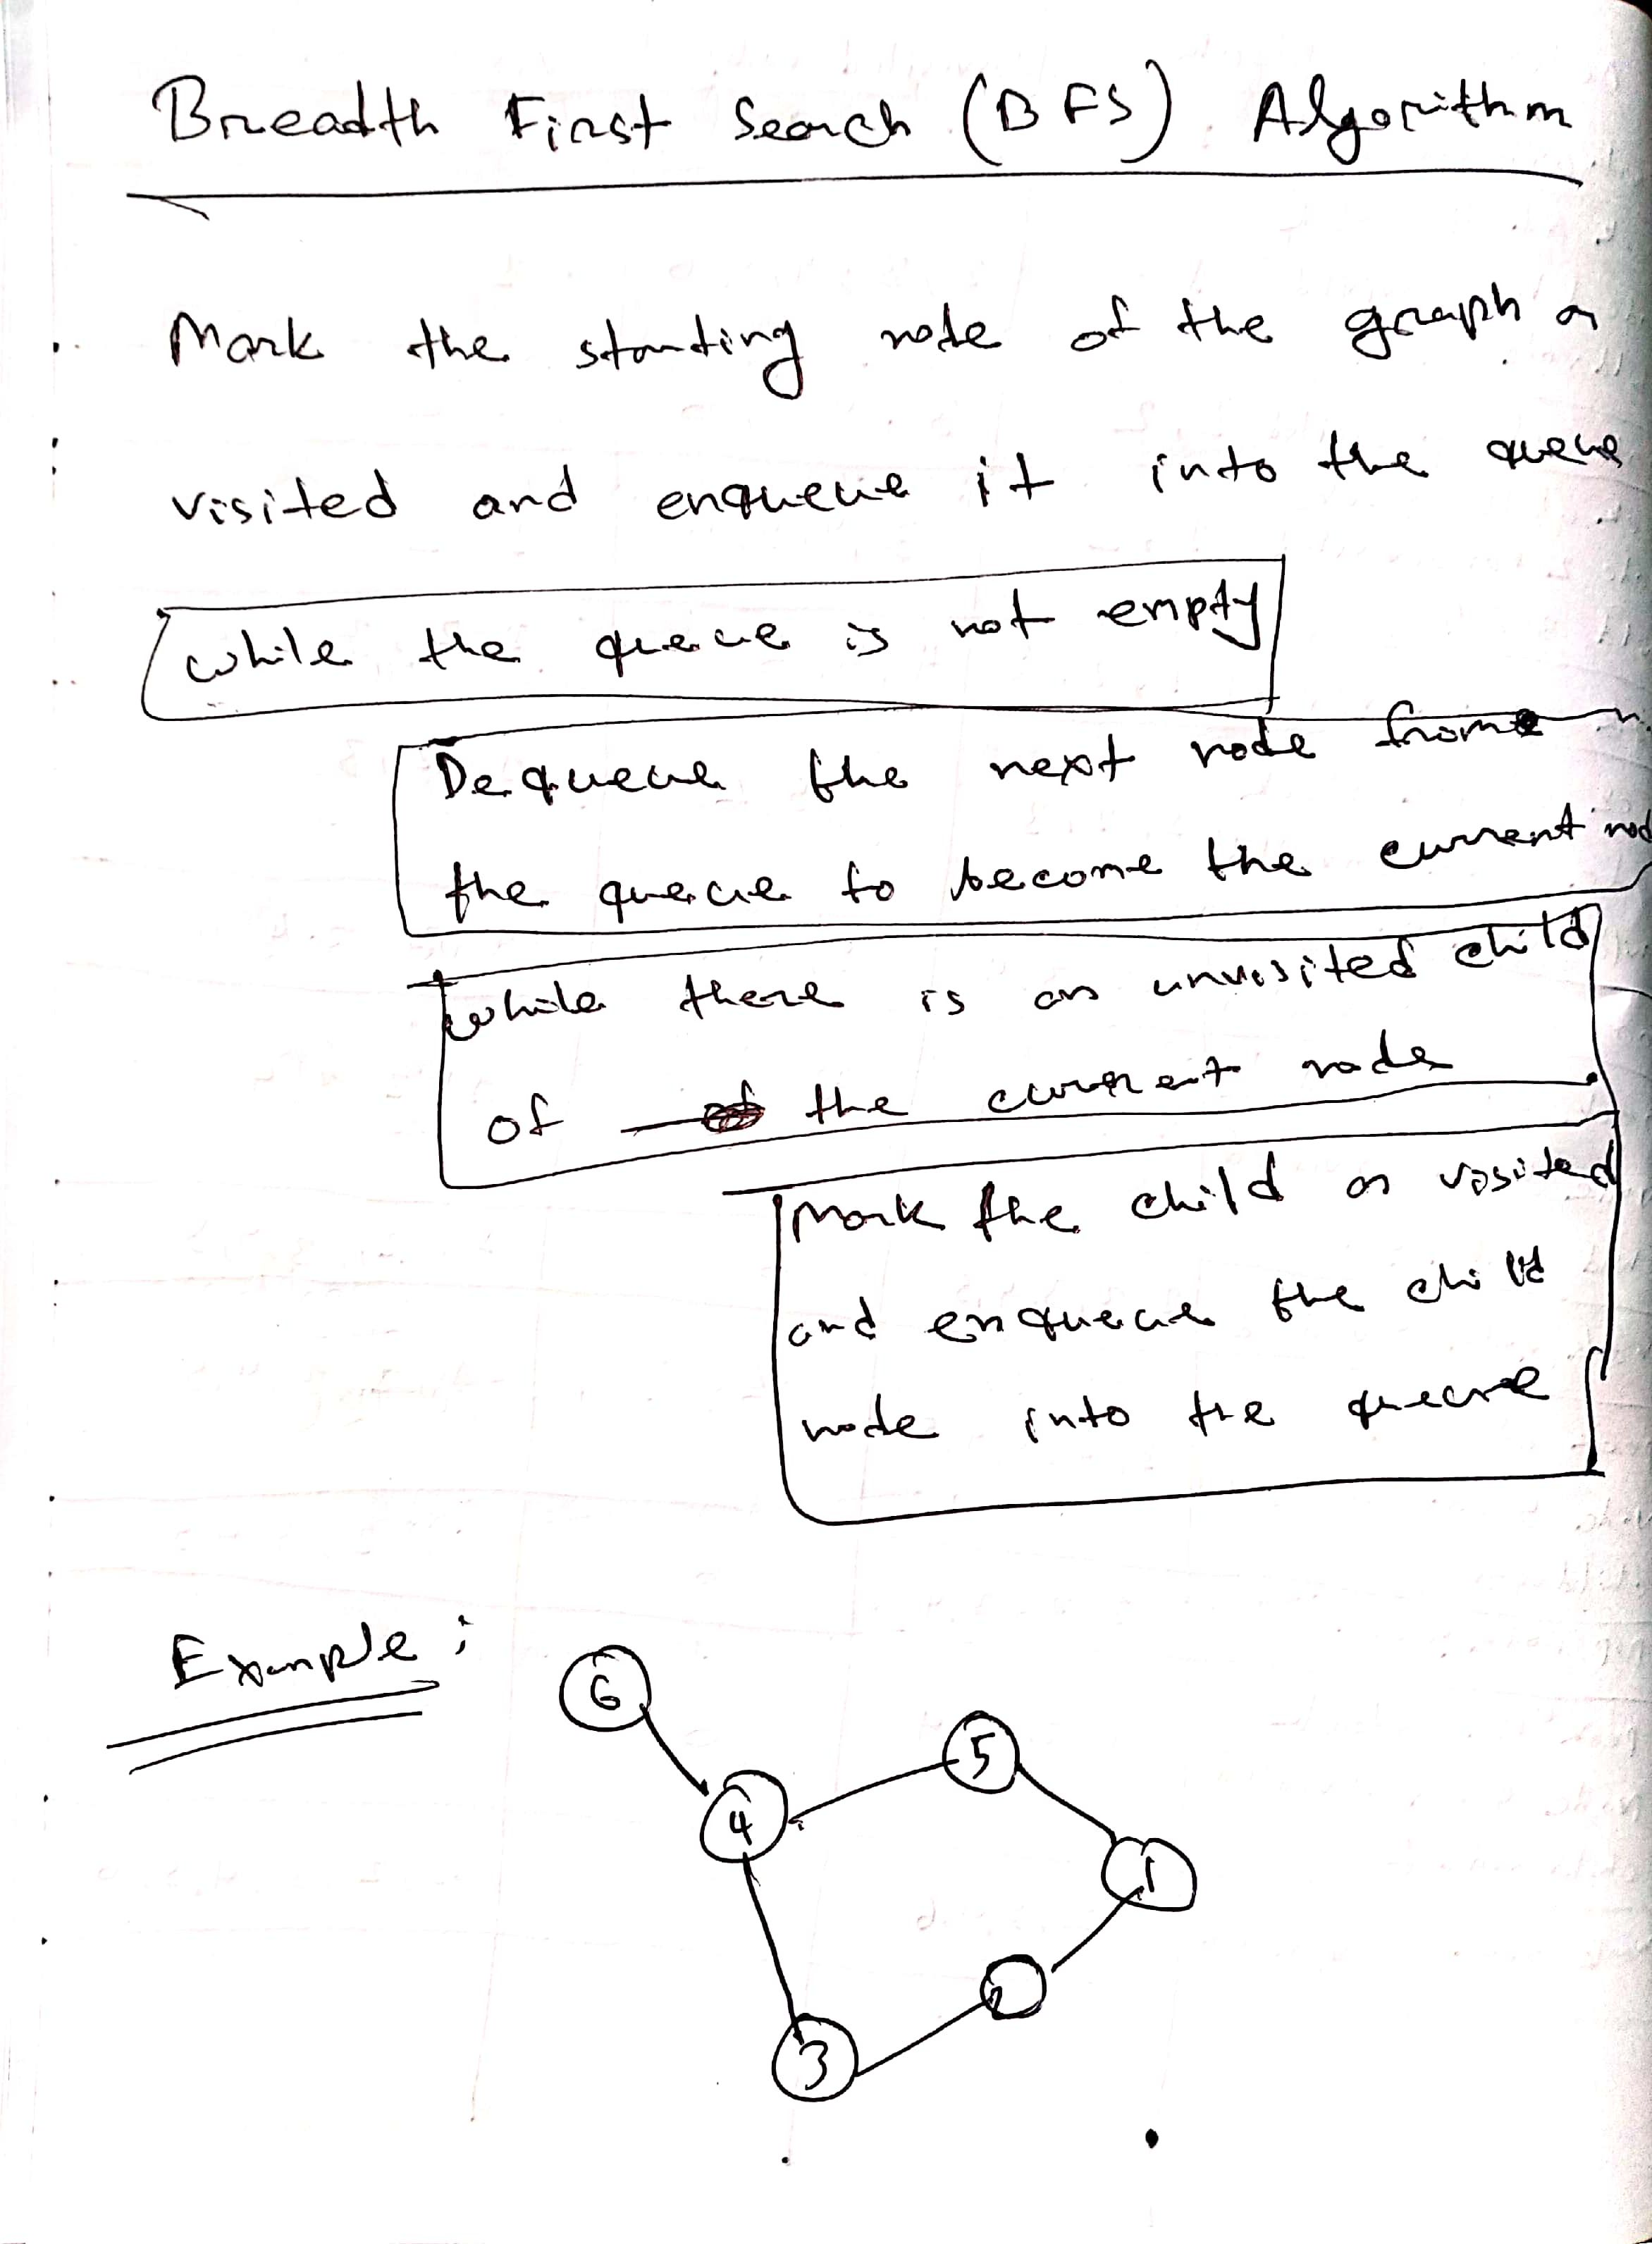 Breadth First Search (BFS) Algorithm
Mark the starting node of the graph as
visited and enqueue it into the queue
while the queue is not empty
Dequeue the next node from
the queue to become the current nod
while there is an unvisited child
of the current node
Mark the child as visited
and enqueue the child
node into the queue
Example:
6
5
4
1
2
3